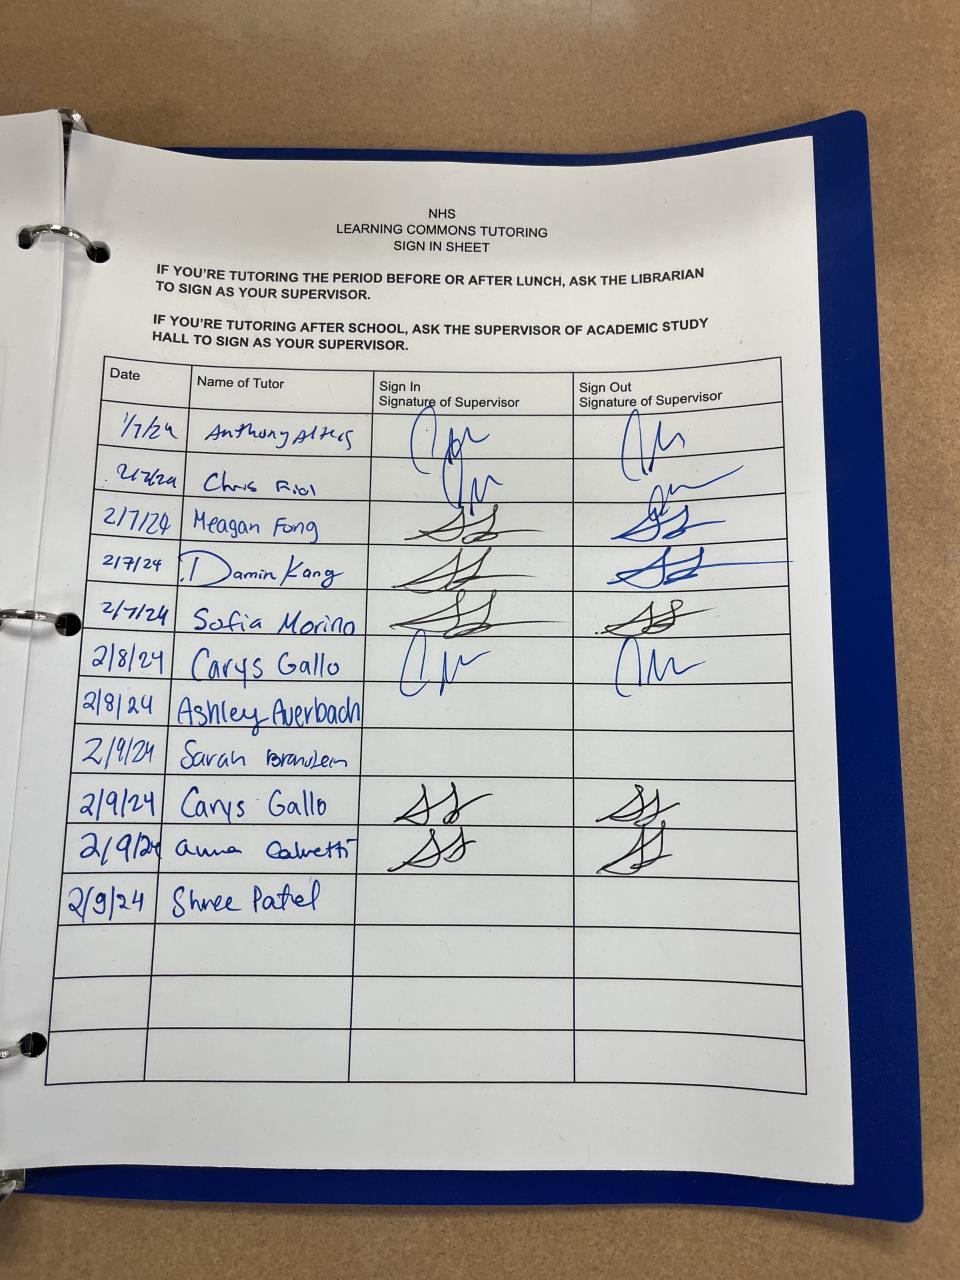 NHS
LEARNING COMMONS TUTORING
SIGN IN SHEET
IF YOU'RE TUTORING THE PERIOD BEFORE OR AFTER LUNCH, ASK THE LIBRARIAN
TO SIGN AS YOUR SUPERVISOR.
IF YOU'RE TUTORING AFTER SCHOOL, ASK THE SUPERVISOR OF ACADEMIC STUDY
HALL TO SIGN AS YOUR SUPERVISOR.
Date Name of Tutor Sign In Sign Out
Signature of Supervisor Signature of Supervisor
1/7/24 Anthony
2/7/24 Chris
2/7/24 Meagan Fong
2/7/24 Damin Kang
2/7/24 Sofia Morino
2/8/24 Carys Gallo
2/8/24 Ashley Auerbach
2/9/24 Sarah
2/9/24 Carys Gallo
2/9/24 anna Calvetti
2/9/24 Shree Patel